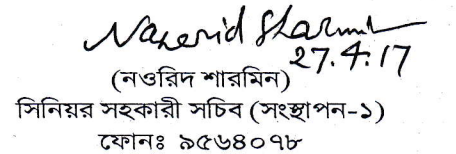 Naorid Sharmin
27.4.17
(নওরিদ শারমিন)
সিনিয়র সহকারী সচিব (সংস্থাপন-১)
ফোনঃ ৯৫৬৪০৭৮